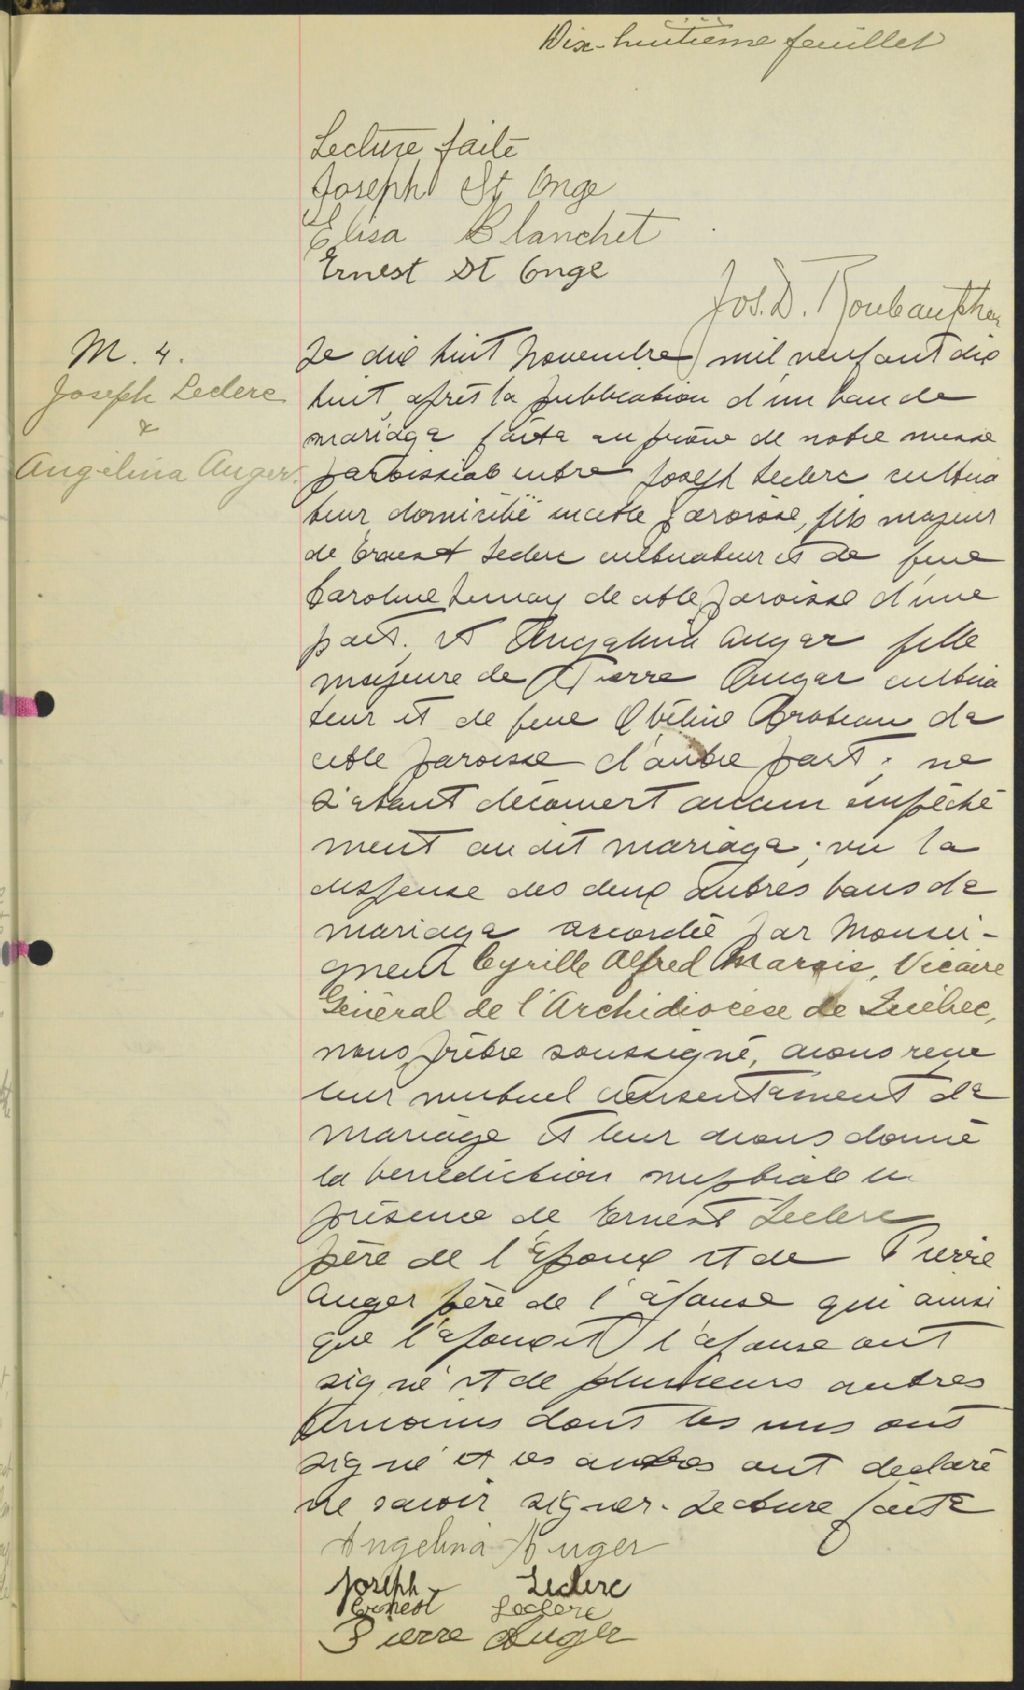 Dix-huitième feuillet
Lecture faite
Joseph St Onge
Elisa Blanchet
Ernest St Onge
Jos. D.
M. 4.
Joseph Leclerc
&
Angélina Auger.
Le dix huit Novembre mil neuf cent dix
huit, après la publication d'un ban de
mariage faite au prône de notre messe
paroissiale entre Joseph Leclerc cultiva
teur domicilié en cette paroisse, fils majeur
de Ernest Leclerc cultivateur et de feue
Caroline Lemay de cette paroisse d'une
part, et Angelina Auger fille
majeure de Pierre Auger cultiva
teur et de feue Obéline de
cette paroisse d'autre part; ne
s'étant découvert aucun empêche
ment au dit mariage; vu la
dispense des deux autres bans de
mariage accordée par Monsei-
gneur Cyrille Alfred Marois, Vicaire
Général de l'Archidiocèse de Québec,
nous, prêtre soussigné, avons reçu
leur mutuel consentement de
mariage et leur avons donné
la bénédiction nuptiale en
présence de Ernest Leclerc
père de l'Epoux et de Pierre
Auger père de l'épouse qui ainsi
que l'époux et l'épouse ont
signé et de plusieurs autres
témoins dont les uns ont
signé et les autres ont déclaré
ne savoir signer. Lecture faite
Angelina Auger
Joseph Leclerc
Ernest Leclerc
Pierre Auger